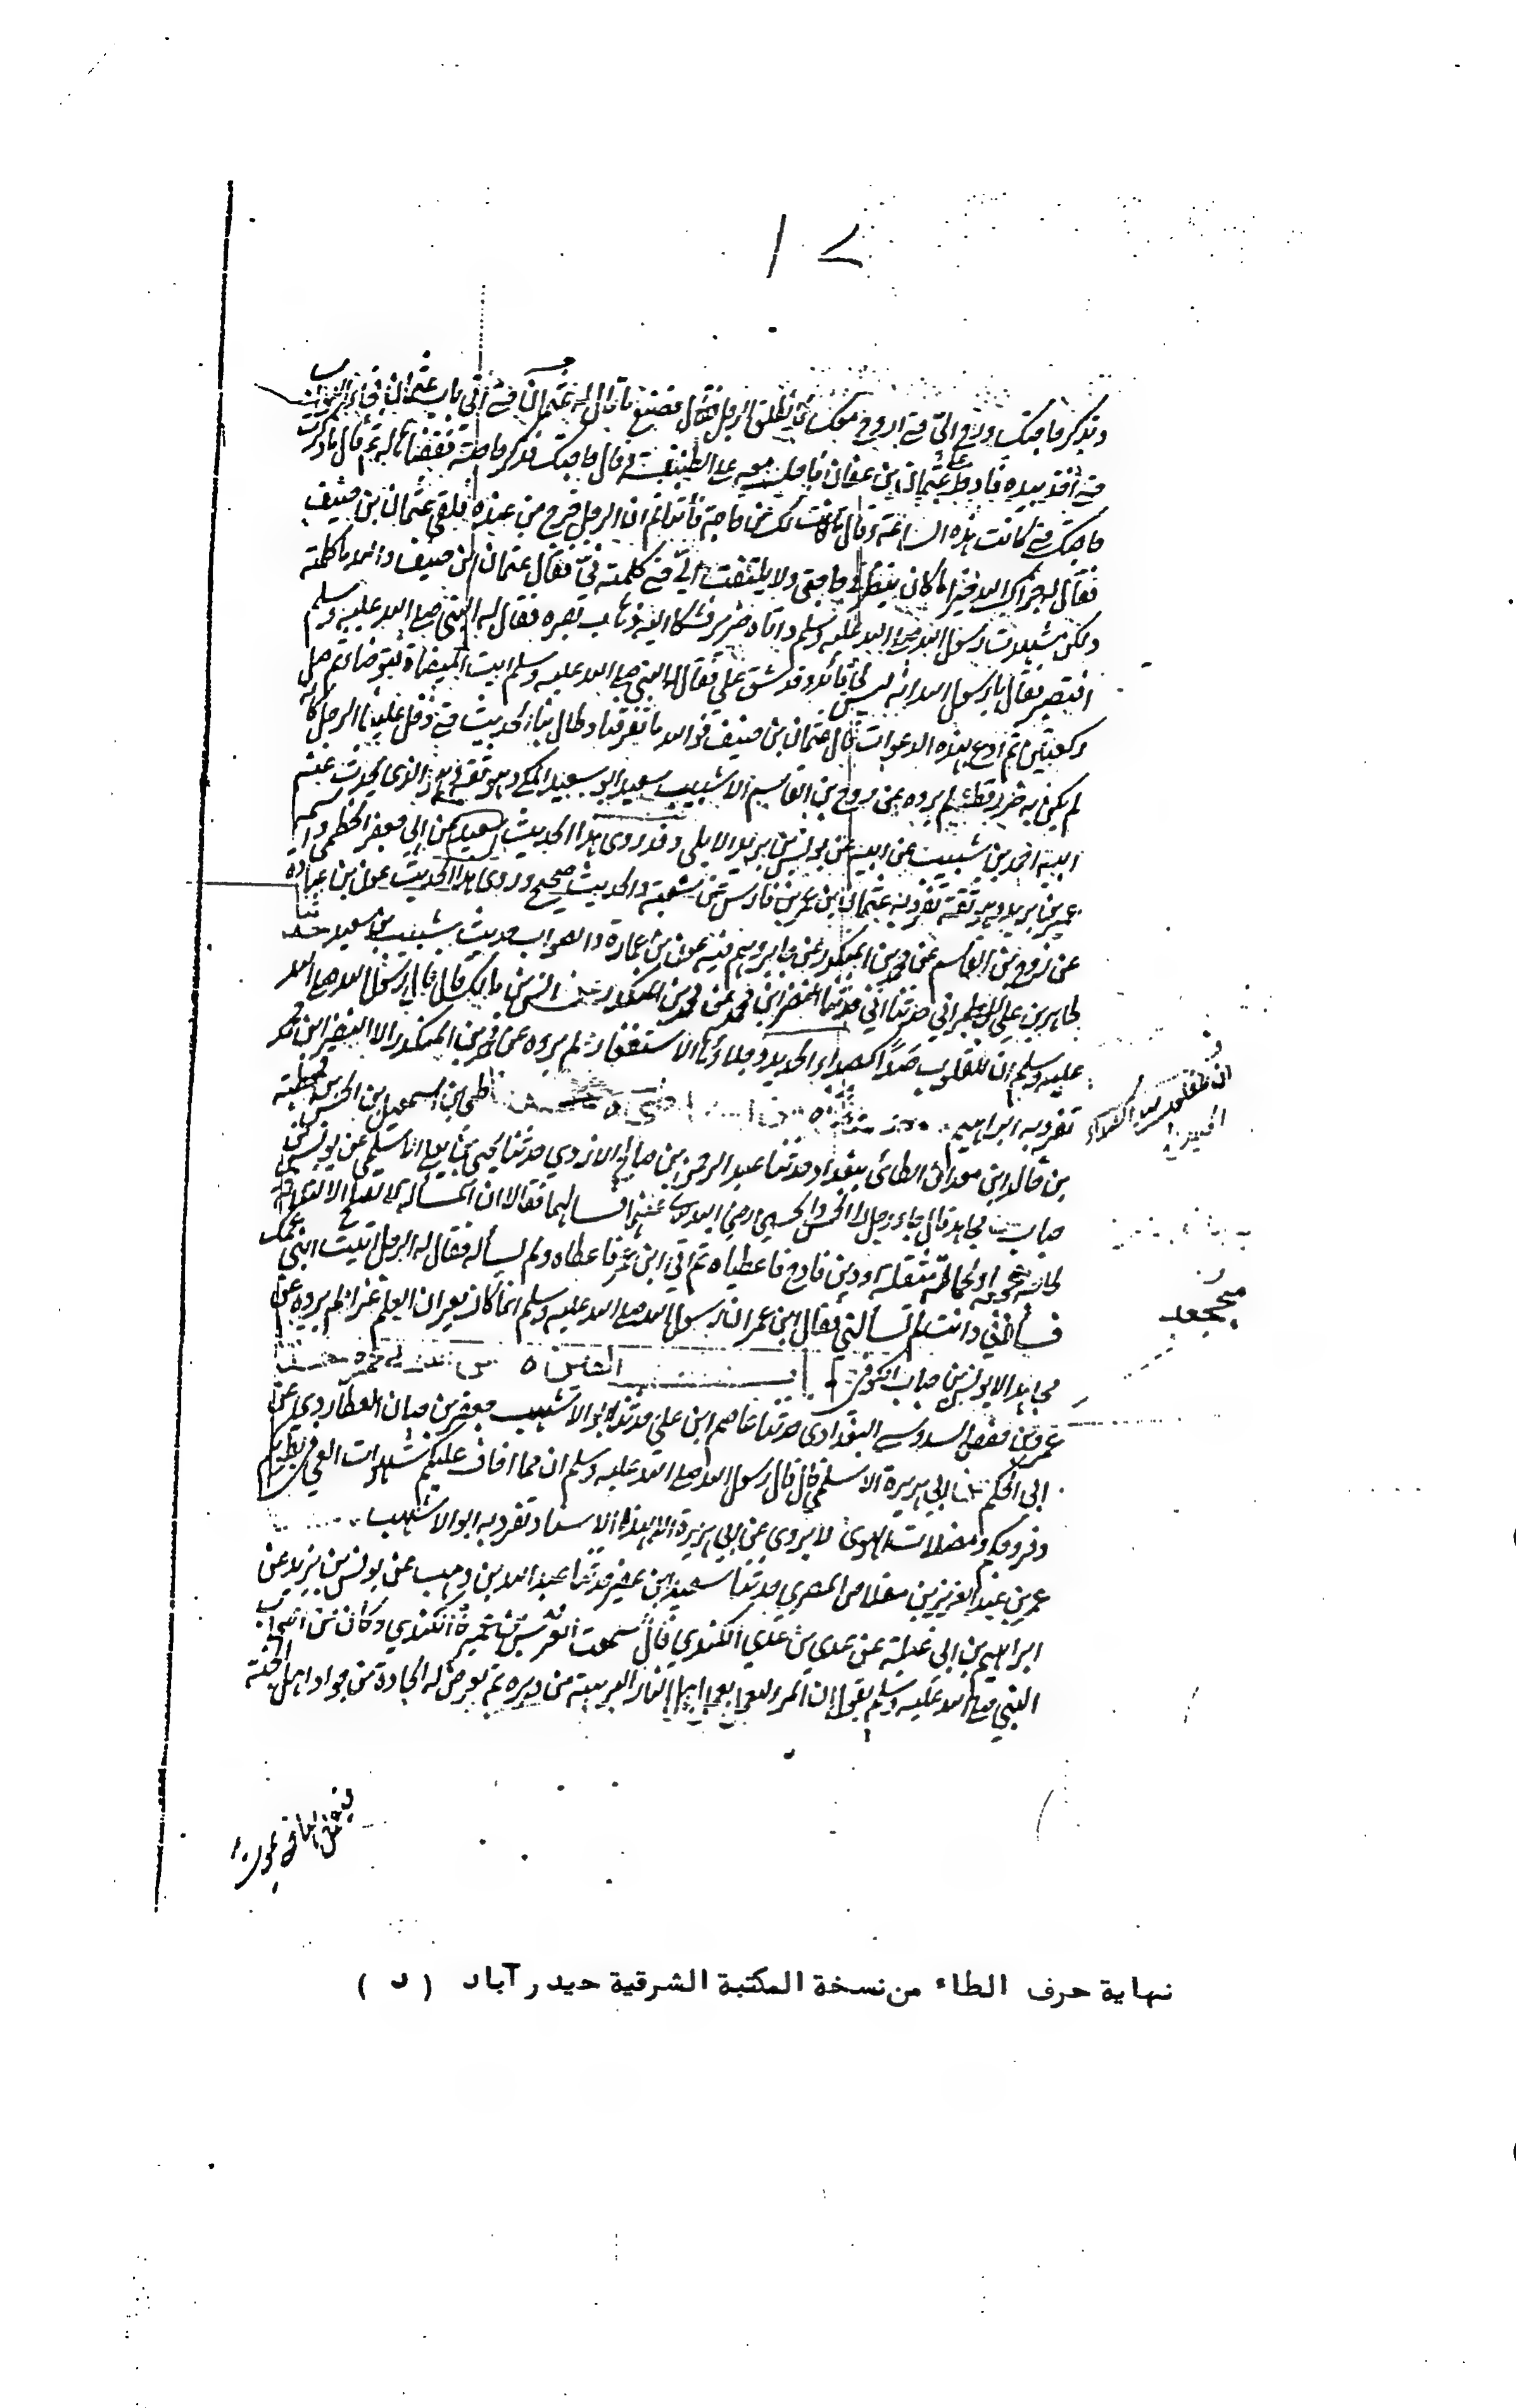 ١٠٢
وتذكر حاجتك ورح الي حتى اروح معك فانطلق الرجل فصنع ما قال له عثمان حتى اتى باب عثمان فجاء البواب
حتى أخذ بيده فادخله على عثمان بن عفان فاجلسه معه على الطنفسة وقال حاجتك فذكر حاجته فقضاها له ثم قال ما ذكرت
حاجتك حتى كانت هذه الساعة وقال ما كانت لك من حاجة فأتنا ثم ان الرجل خرج من عنده فلقي عثمان بن حنيف
فقال له جزاك الله خيرا ما كان ينظر في حاجتي ولا يلتفت الي حتى كلمته في فقال عثمان بن حنيف والله ما كلمته
ولكن شهدت رسول الله صلى الله عليه وسلم واتاه ضرير فشكا اليه ذهاب بصره فقال له النبي صلى الله عليه وسلم
افتصبر فقال يا رسول الله انه ليس لي قائد وقد شق علي فقال له النبي صلى الله عليه وسلم ايت الميضاة فتوضأ ثم صل
ركعتين ثم ادع بهذه الدعوات قال عثمان بن حنيف فوالله ما تفرقنا وطال بنا الحديث حتى دخل علينا الرجل كأنه
لم يكن به ضرر قط لم يروه عن روح بن القاسم الا شبيب بن سعيد ابو سعيد المكي وهو ثقة وهو الذي يحدث عنه
ابنه احمد بن شبيب عن ابيه عن يونس بن يزيد الايلي وقد روى هذا الحديث شعبة عن ابي جعفر الخطمي واسمه
عمير بن يزيد وهو ثقة تفرد به عثمان بن عمر بن فارس عن شعبة والحديث صحيح وروى هذا الحديث عون بن عمارة
عن روح بن القاسم عن محمد بن المنكدر عن جابر وهم فيه عون بن عمارة والصواب حديث شبيب بن سعيد حدثنا
طاهر بن علي الطبراني حدثنا ابي حدثنا النضر بن محمد عن محمد بن المنكدر عن انس بن مالك قال قال رسول الله صلى الله
عليه وسلم ان للقلوب صدأ كصداء الحديد وجلاؤها الاستغفار لم يروه عن محمد بن المنكدر الا النضر ابن محمد
تفرد به ابراهيم طي بن اسمعيل بن الحسن بن قحطبة
بن خالد بن معدان الطائي ببغداد حدثنا عبد الرحمن بن صالح الازدي حدثنا يحيى بن يعلى الاسلمي عن يونس بن
خباب عن مجاهد قال جاء رجل الى الحسن والحسين رضي الله عنهما فسألهما فقالا ان المسألة لا تصلح الا لثلاثة
لحاجة مجحفة او لحمالة مثقلة او دين فادح فاعطياه ثم اتى ابن عمر فاعطاه ولم يسأله فقال له الرجل اتيت ابني عمك
فسألاني وانت لم تسألني فقال ابن عمر ابنا رسول الله صلى الله عليه وسلم انما كانا يغران العلم غرا لم يروه عن
مجاهد الا يونس بن خباب الكوفي
عمرو بن حفص السدوسي البغدادي حدثنا عاصم ابن علي حدثنا ابو الاشهب جعفر بن حيان العطاردي عن
ابي الحكم عن ابي برزة الاسلمي قال قال رسول الله صلى الله عليه وسلم ان مما اخاف عليكم شهوات الغي في بطونكم
وفروجكم ومضلات الهوى لا يروى عن ابي برزة الا بهذا الاسناد تفرد به ابو الاشهب
عمر بن عبد العزيز بن مقلاص المصري حدثنا سعيد ابن عفير حدثنا عبد الله بن وهب عن يونس بن يزيد عن
ابراهيم بن ابي عبلة عن عدي بن عدي الكندي قال سمعت العرس بن عميرة الكندي وكان من اصحاب
النبي صلى الله عليه وسلم يقول ان المرء ليعمل بعمل اهل النار البرهة من دهره ثم تعرض له الجادة من جواد اهل الجنة
مجحف
نهاية حرف الطاء من نسخة المكتبة الشرقية حيدر آباد ( د )